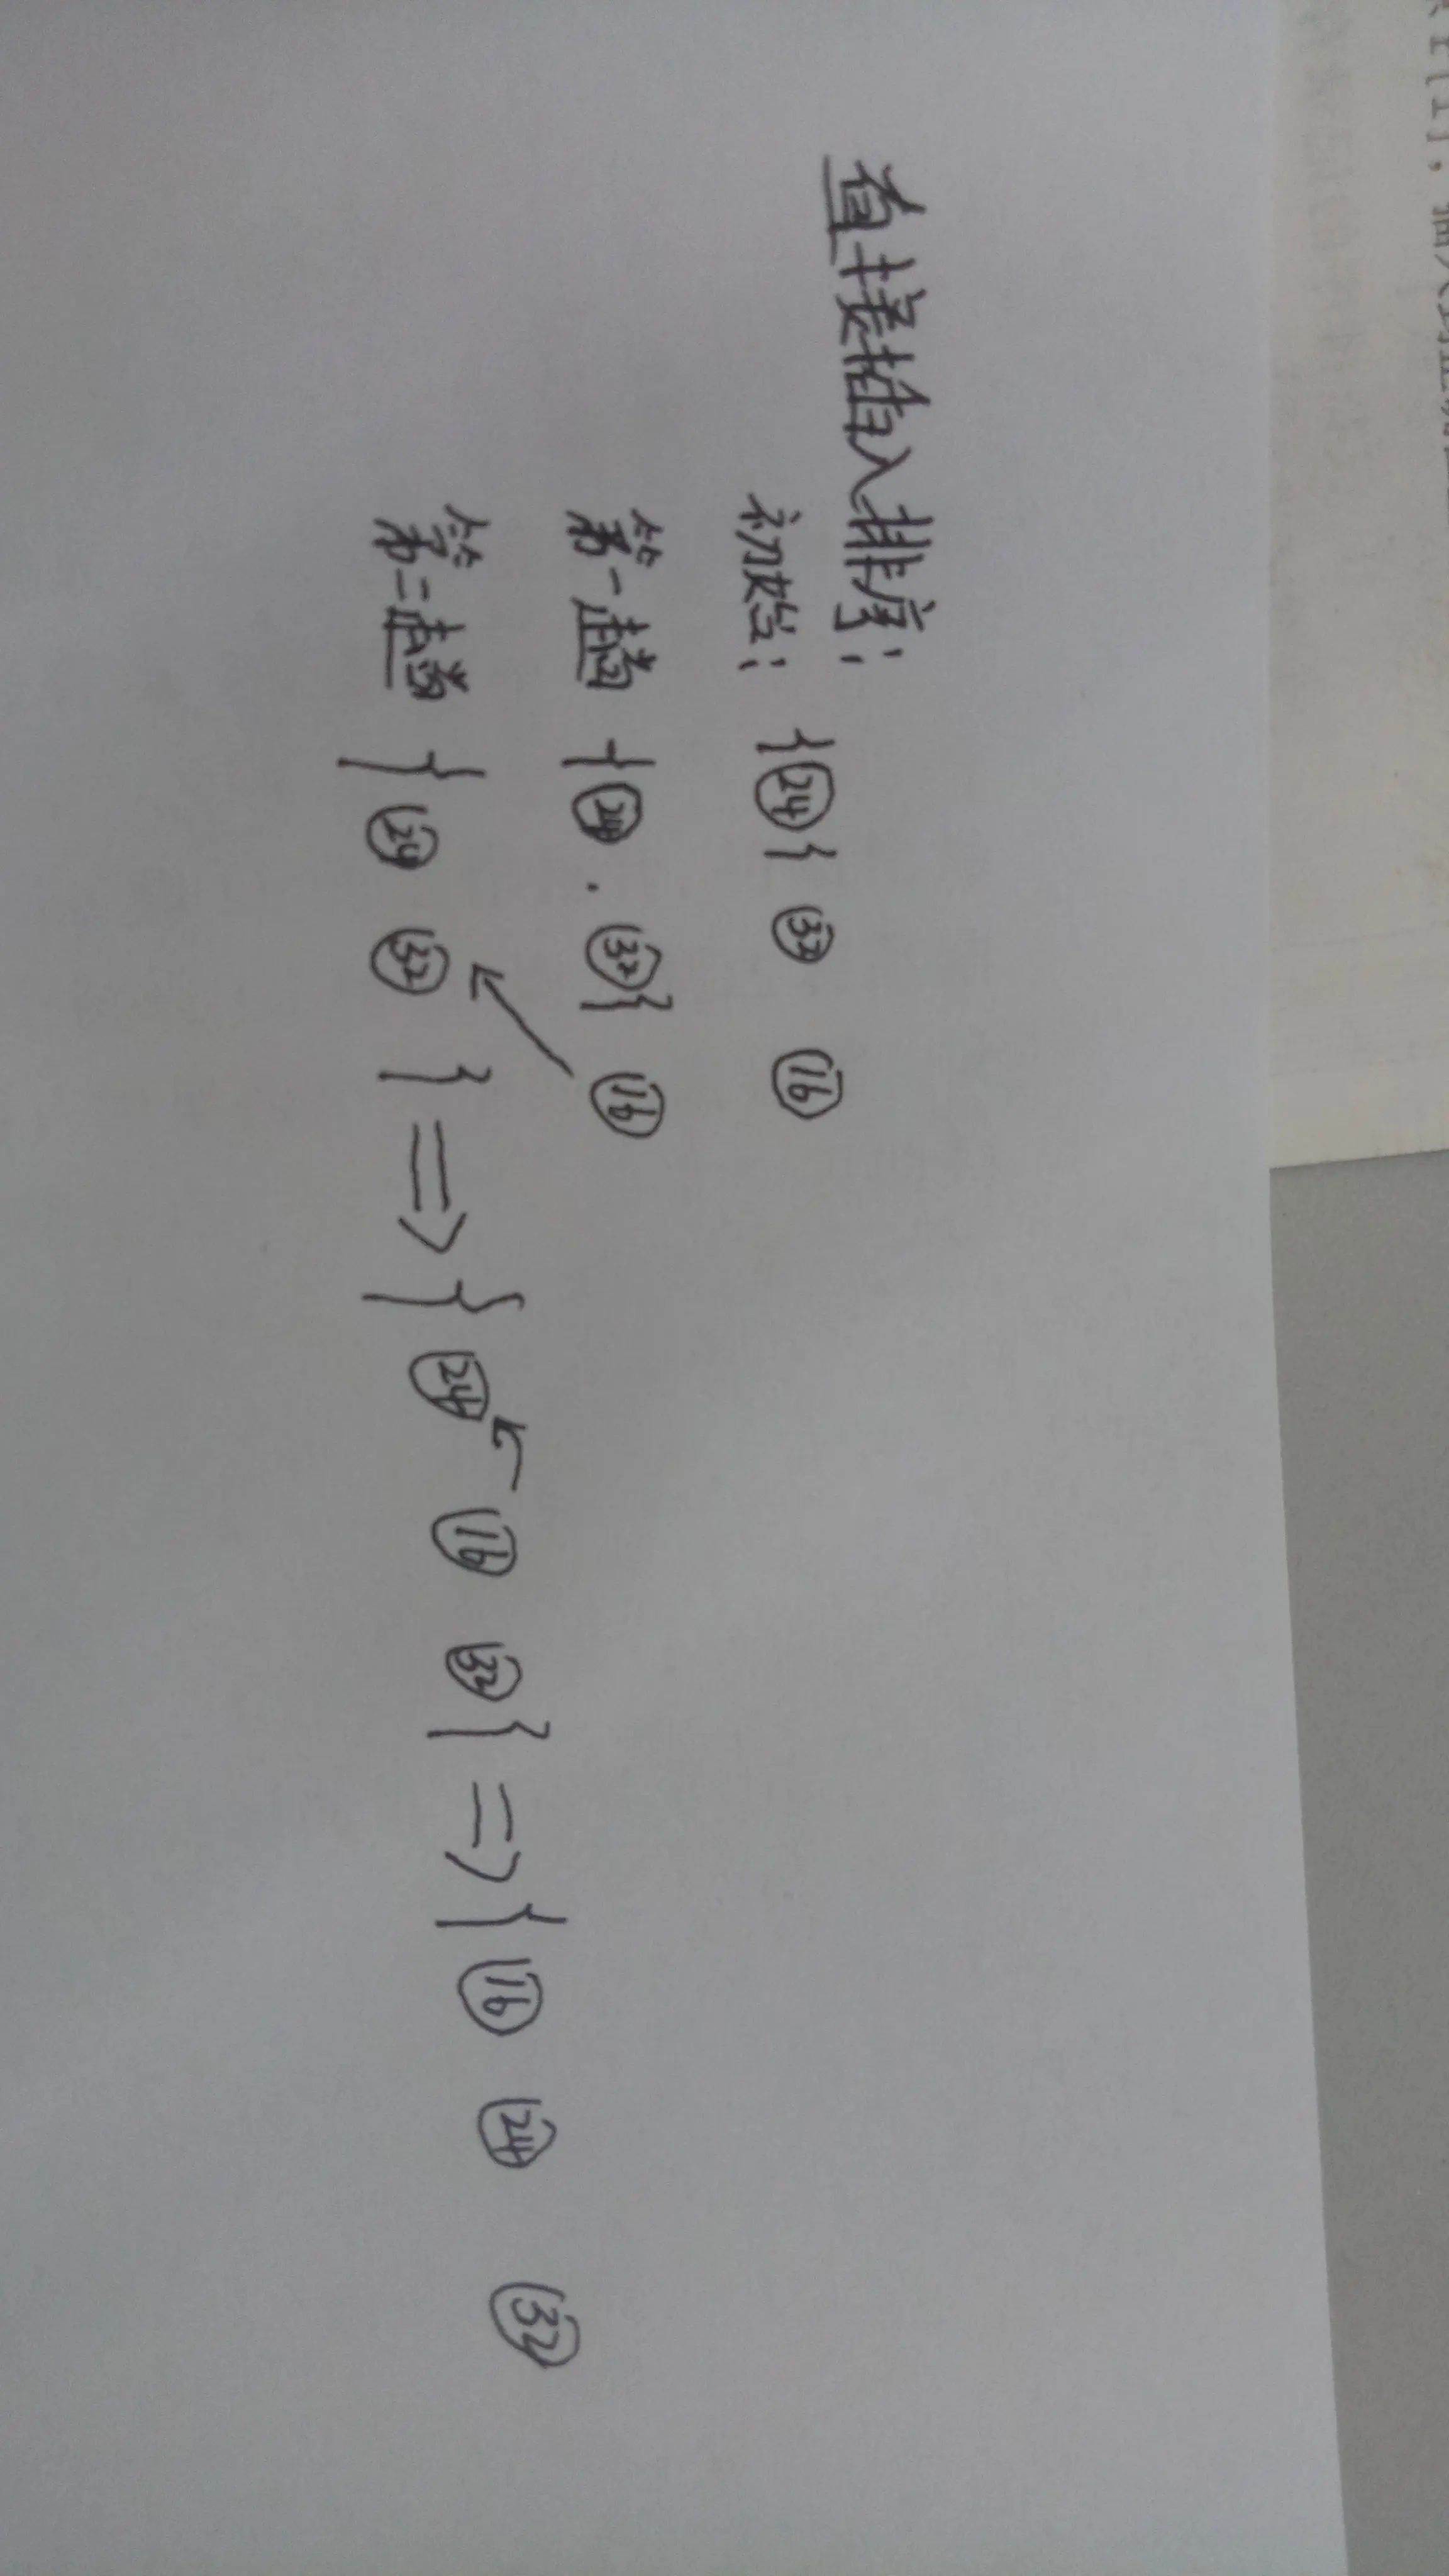 直接插入排序:
初始: {24} 32 16
第一趟 {24. 32} 16
第二趟 {24 32 } => {24 16 32} => {16 24 32